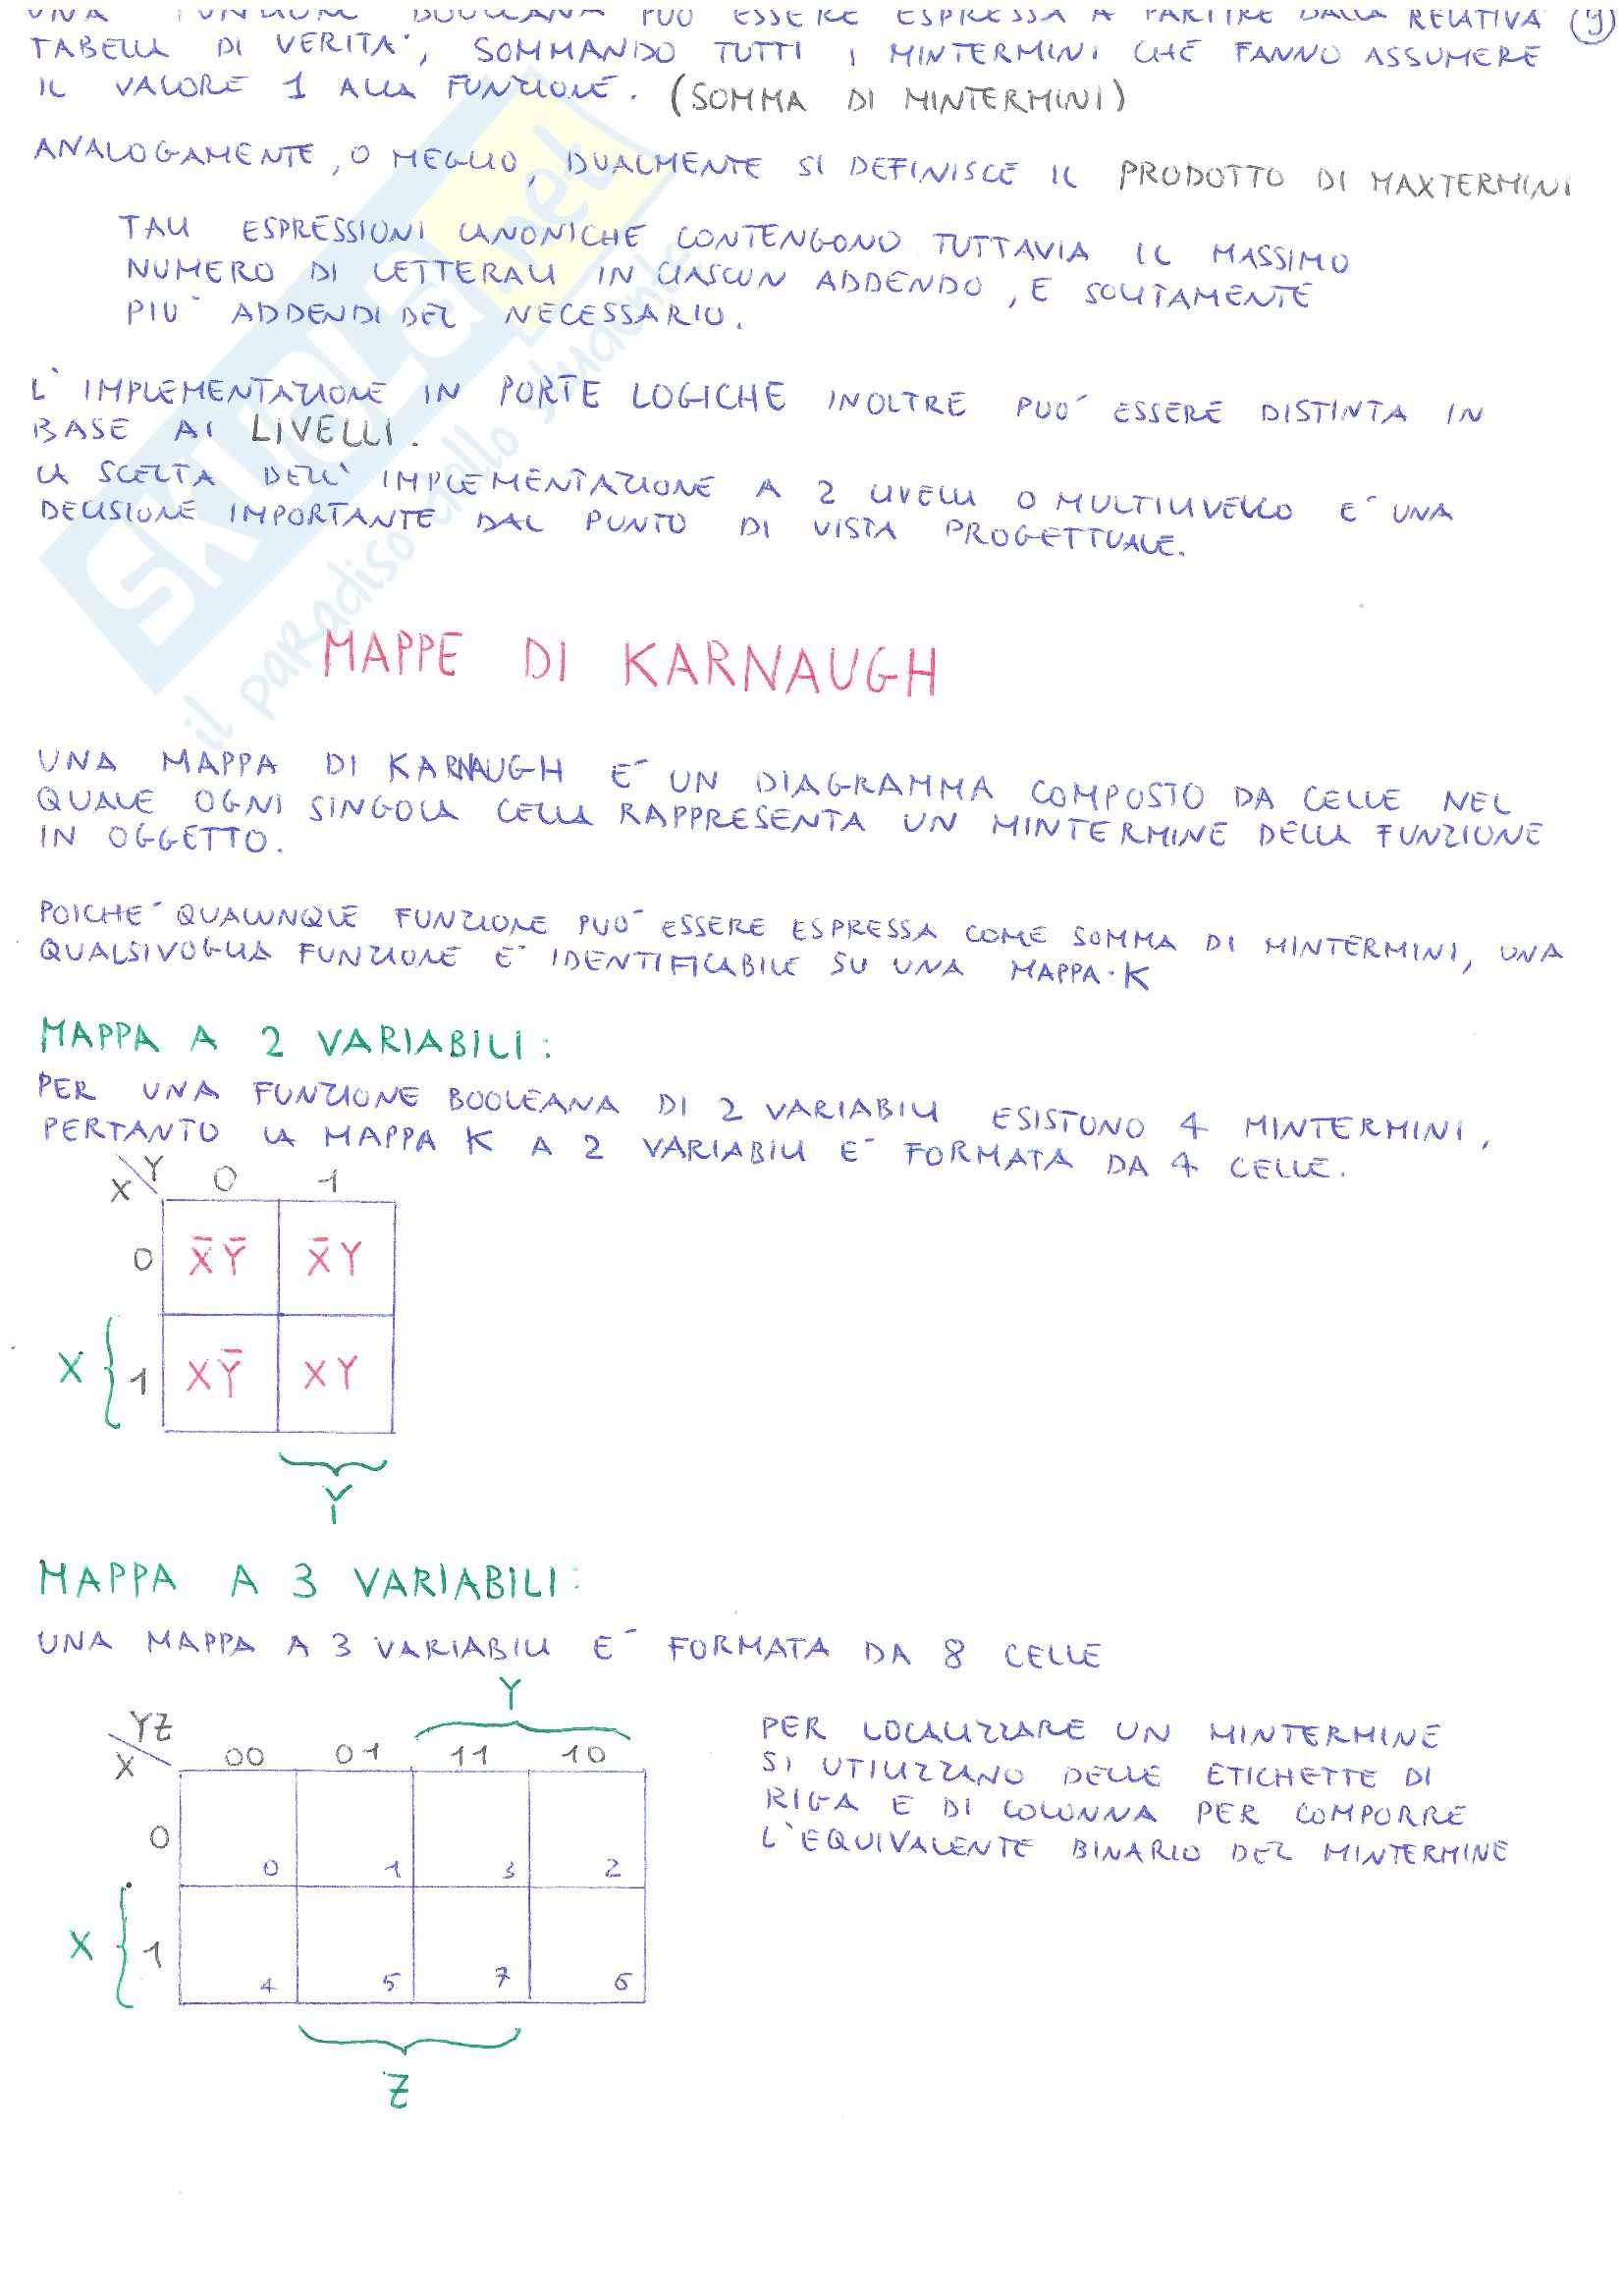 UNA FUNZIONE BOOLEANA PUÒ ESSERE ESPRESSA A PARTIRE DALLA RELATIVA (9)
TABELLA DI VERITA', SOMMANDO TUTTI I MINTERMINI CHE FANNO ASSUMERE
IL VALORE 1 ALLA FUNZIONE. (SOMMA DI MINTERMINI)
ANALOGAMENTE, O MEGLIO, DUALMENTE SI DEFINISCE IL PRODOTTO DI MAXTERMINI
TALI ESPRESSIONI CANONICHE CONTENGONO TUTTAVIA IL MASSIMO
NUMERO DI LETTERALI IN CIASCUN ADDENDO, E SOLITAMENTE
PIU' ADDENDI DEL NECESSARIO.
L'IMPLEMENTAZIONE IN PORTE LOGICHE INOLTRE PUO' ESSERE DISTINTA IN
BASE AI LIVELLI.
LA SCELTA DELL'IMPLEMENTAZIONE A 2 LIVELLI O MULTILIVELLO E' UNA
DECISIONE IMPORTANTE DAL PUNTO DI VISTA PROGETTUALE.
SKUOLA.net
il paradiso dello studente
MAPPE DI KARNAUGH
UNA MAPPA DI KARNAUGH E' UN DIAGRAMMA COMPOSTO DA CELLE NEL
QUALE OGNI SINGOLA CELLA RAPPRESENTA UN MINTERMINE DELLA FUNZIONE
IN OGGETTO.
POICHE' QUALUNQUE FUNZIONE PUO' ESSERE ESPRESSA COME SOMMA DI MINTERMINI, UNA
QUALSIVOGLIA FUNZIONE E' IDENTIFICABILE SU UNA MAPPA-K
MAPPA A 2 VARIABILI:
PER UNA FUNZIONE BOOLEANA DI 2 VARIABILI ESISTONO 4 MINTERMINI,
PERTANTO LA MAPPA K A 2 VARIABILI E' FORMATA DA 4 CELLE.
X Y 0 1
0 X̄Ȳ X̄Y
X { 1 XȲ XY
Y
MAPPA A 3 VARIABILI:
UNA MAPPA A 3 VARIABILI E' FORMATA DA 8 CELLE
Y
YZ
X 00 01 11 10
0 0 1 3 2
X { 1 4 5 7 6
Z
PER LOCALIZZARE UN MINTERMINE
SI UTILIZZANO DELLE ETICHETTE DI
RIGA E DI COLONNA PER COMPORRE
L'EQUIVALENTE BINARIO DEL MINTERMINE